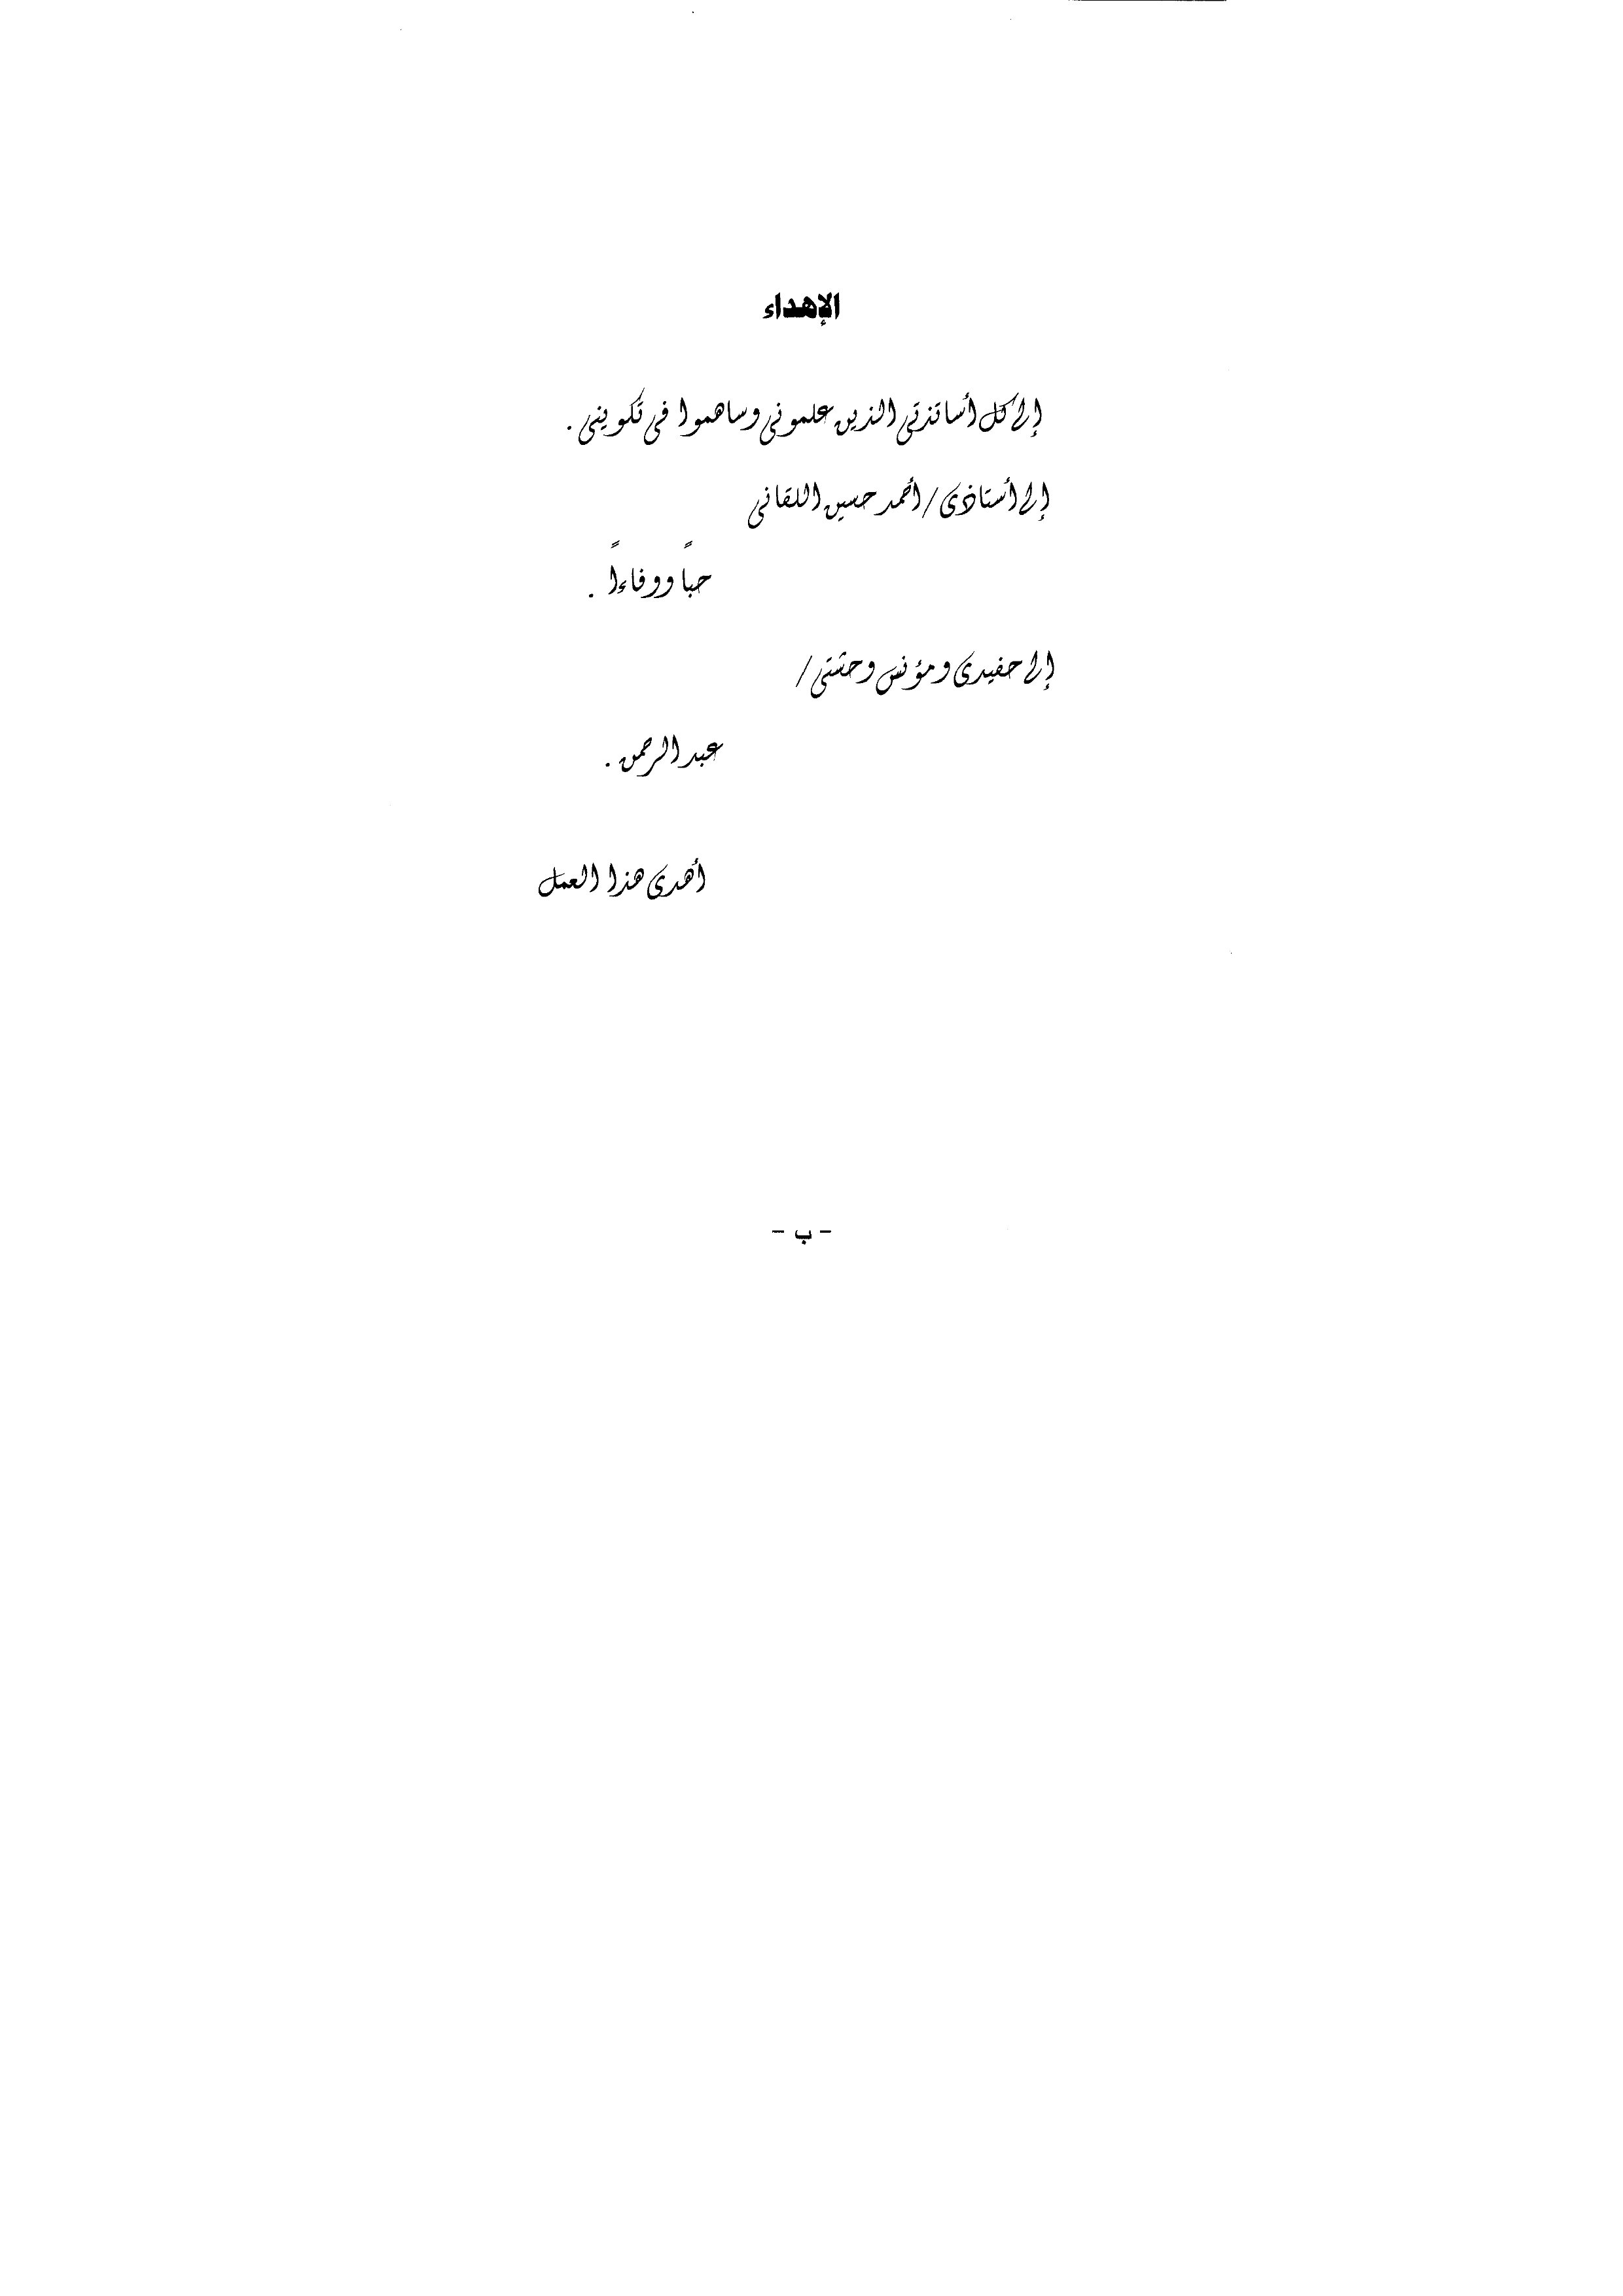 الإهداء
إلى كل أساتذتى الذين علمونى وساهموا فى تكوينى .
إلى أستاذى / أحمد حسين اللقانى
حباً ووفاءاً .
إلى حفيدى ومؤنس وحشتى /
عبد الرحمن .
أهدى هذا العمل
- ب -